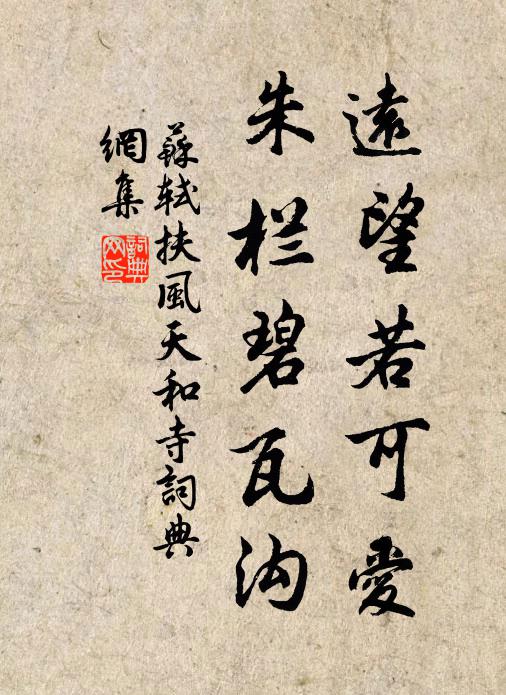 遠望若可愛
朱栏碧瓦沟
蘇轼扶風天和寺詞典
網集
詞典
网印